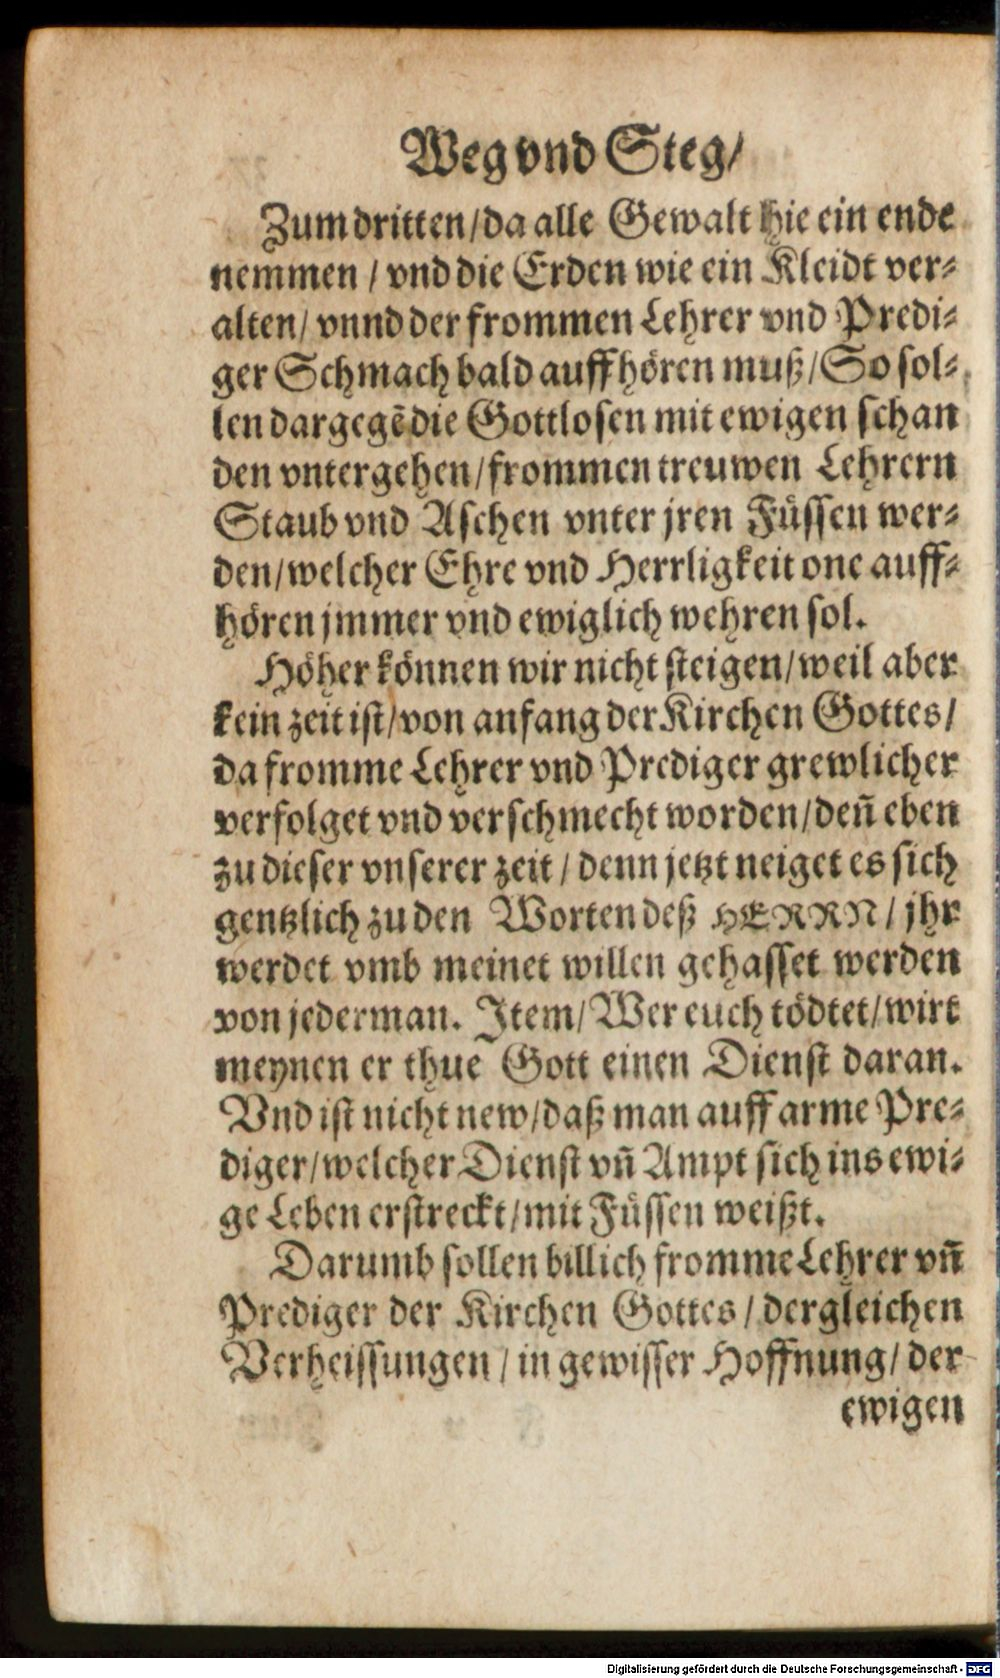 Weg vnd Steg/
Zum dritten/ da alle Gewalt hie ein ende
nemmen / vnd die Erden wie ein Kleidt ver-
alten/ vnnd der frommen Lehrer vnd Predi-
ger Schmach bald auffhören muß/ So sol-
len dargegē die Gottlosen mit ewigen schan
den vntergehen/ frommen treuwen Lehrern
Staub vnd Aschen vnter jren Füssen wer-
den/ welcher Ehre vnd Herrligkeit one auff-
hören jmmer vnd ewiglich wehren sol.
Höher können wir nicht steigen/ weil aber
kein zeit ist/ von anfang der Kirchen Gottes/
da fromme Lehrer vnd Prediger grewlicher
verfolget vnd verschmecht worden/ deñ eben
zu dieser vnserer zeit / denn jetzt neiget es sich
gentzlich zu den Worten deß HERRN / jhr
werdet vmb meinet willen gehasset werden
von jederman. Item/ Wer euch tödtet/ wirt
meynen er thue Gott einen Dienst daran.
Vnd ist nicht new/ daß man auff arme Pre-
diger/ welcher Dienst vñ Ampt sich ins ewi-
ge Leben erstreckt/ mit Füssen weißt.
Darumb sollen billich fromme Lehrer vñ
Prediger der Kirchen Gottes / dergleichen
Verheissungen / in gewisser Hoffnung/ der
ewigen
Digitalisierung gefördert durch die Deutsche Forschungsgemeinschaft - DFG